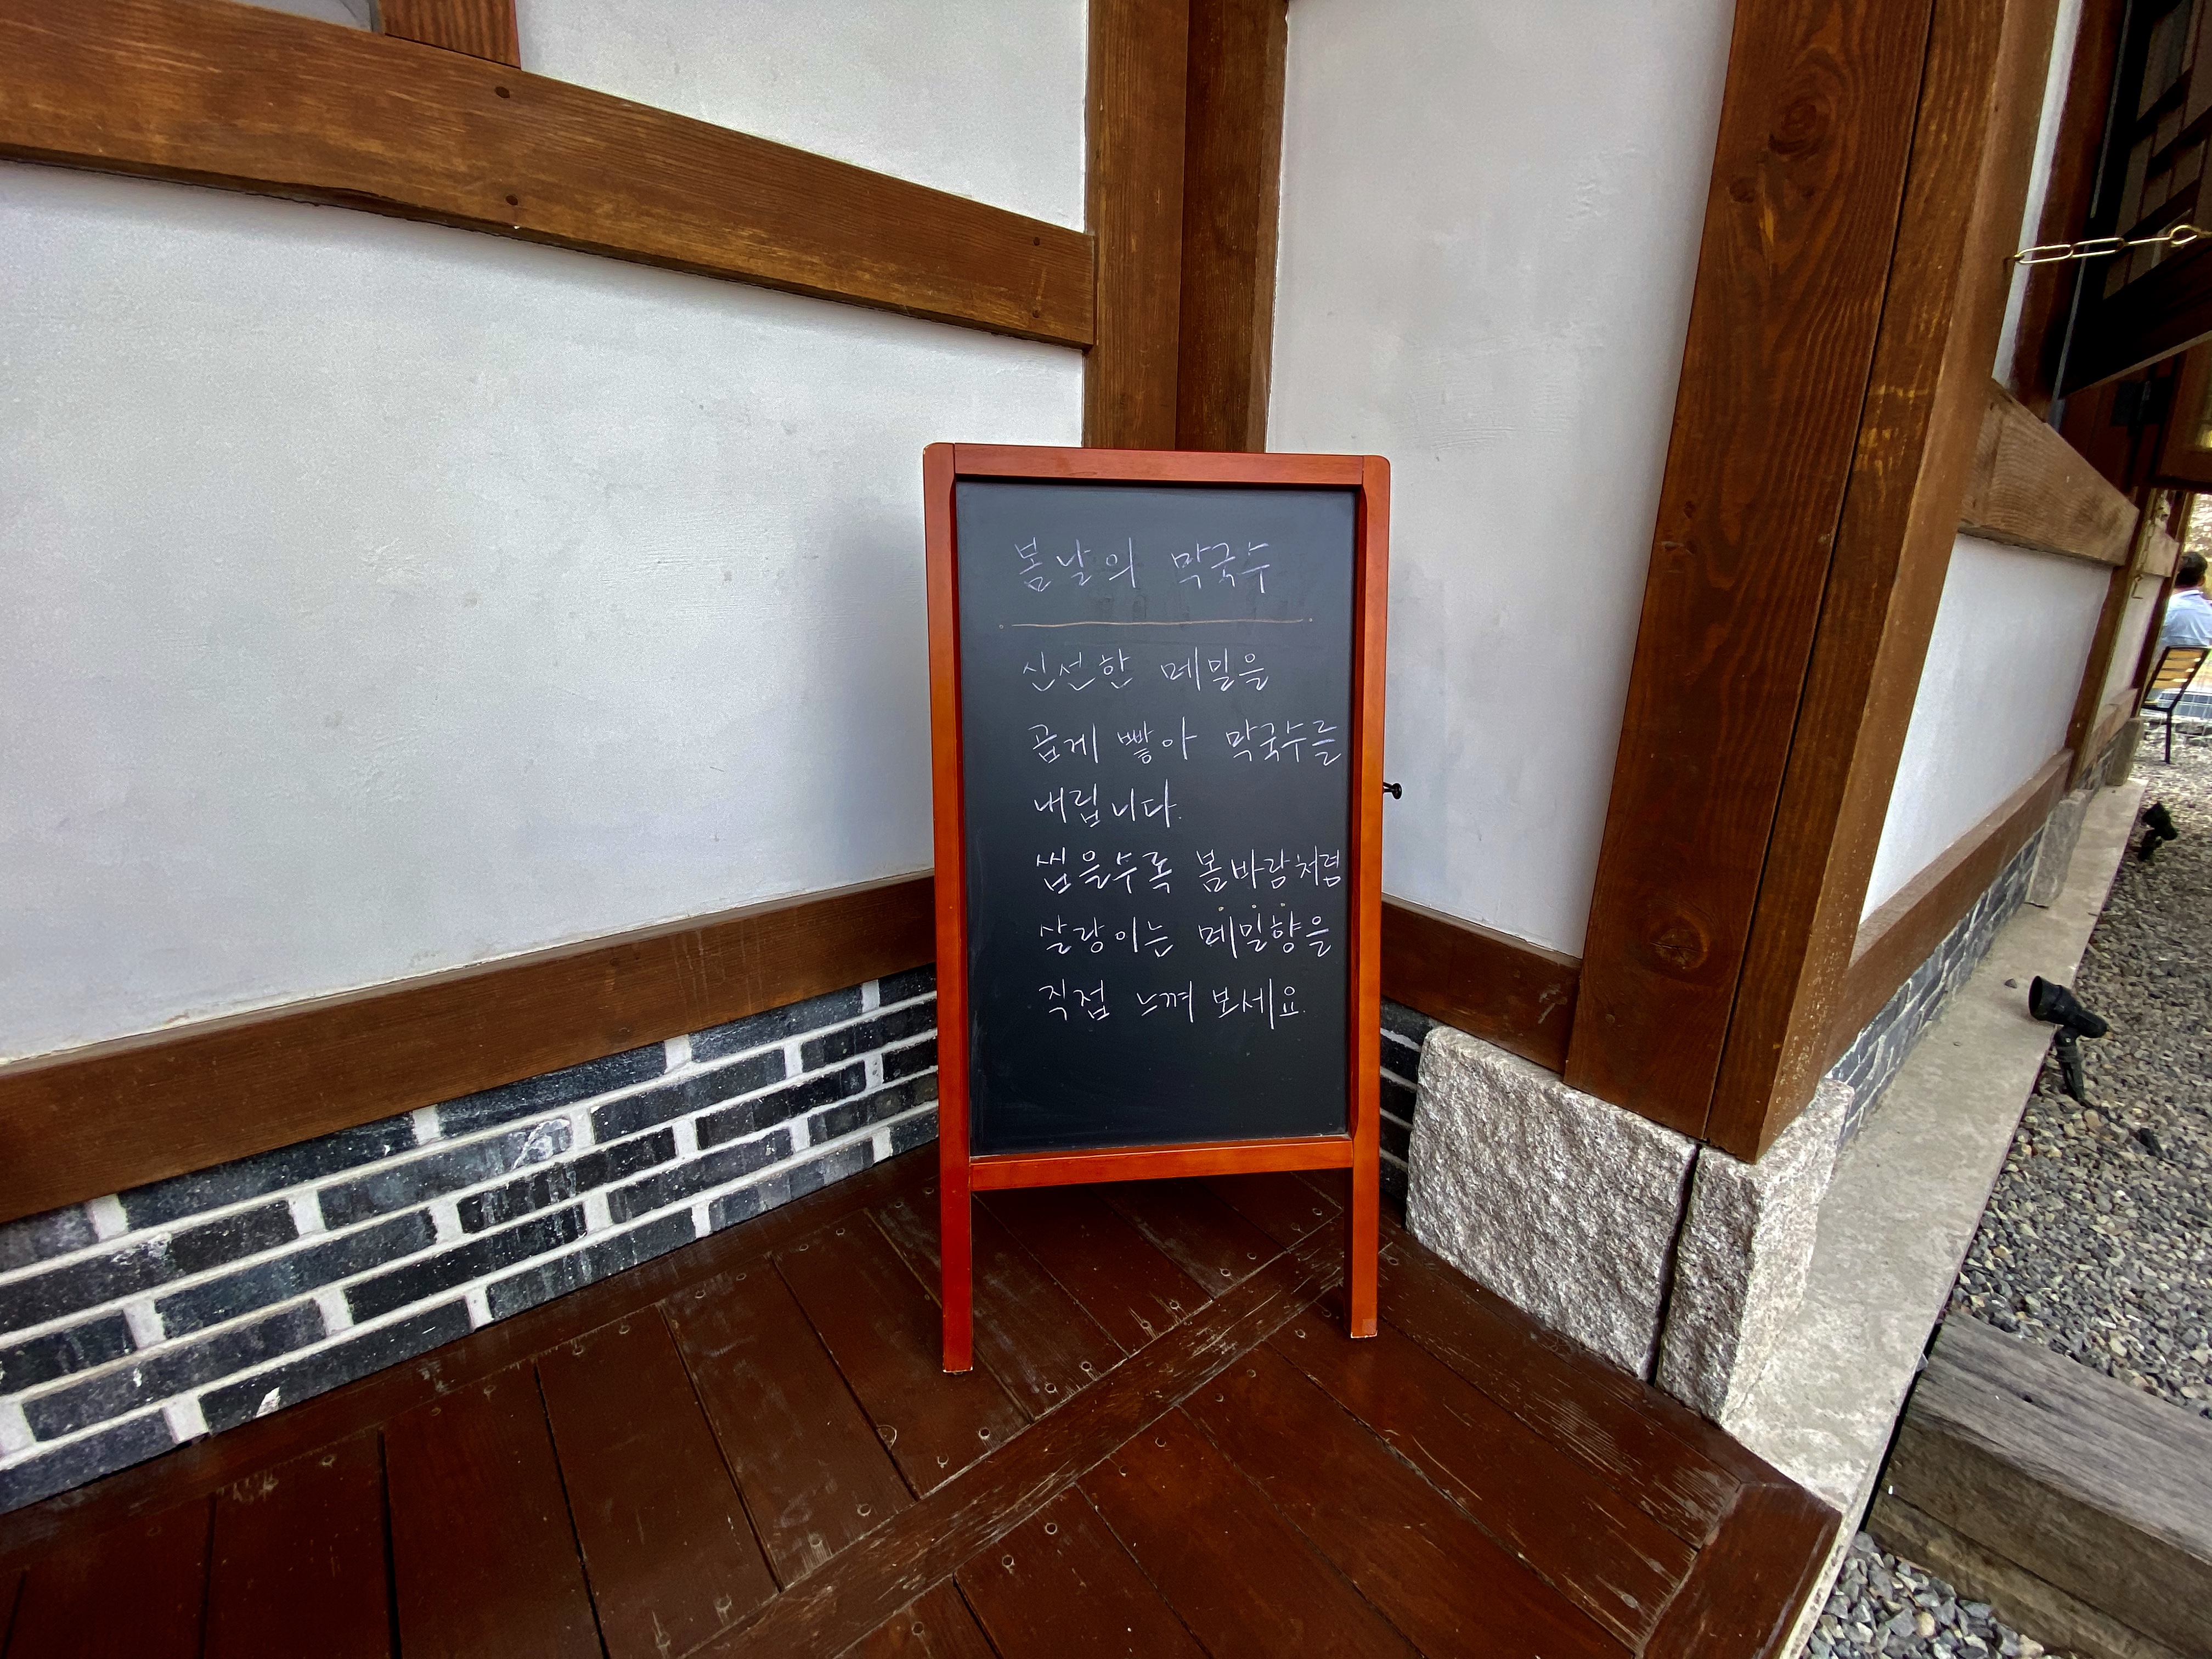 봄날의 막국수
신선한 메밀을
곱게 빻아 막국수를
내립니다.
씹을수록 봄바람처럼
살랑이는 메밀향을
직접 느껴 보세요.